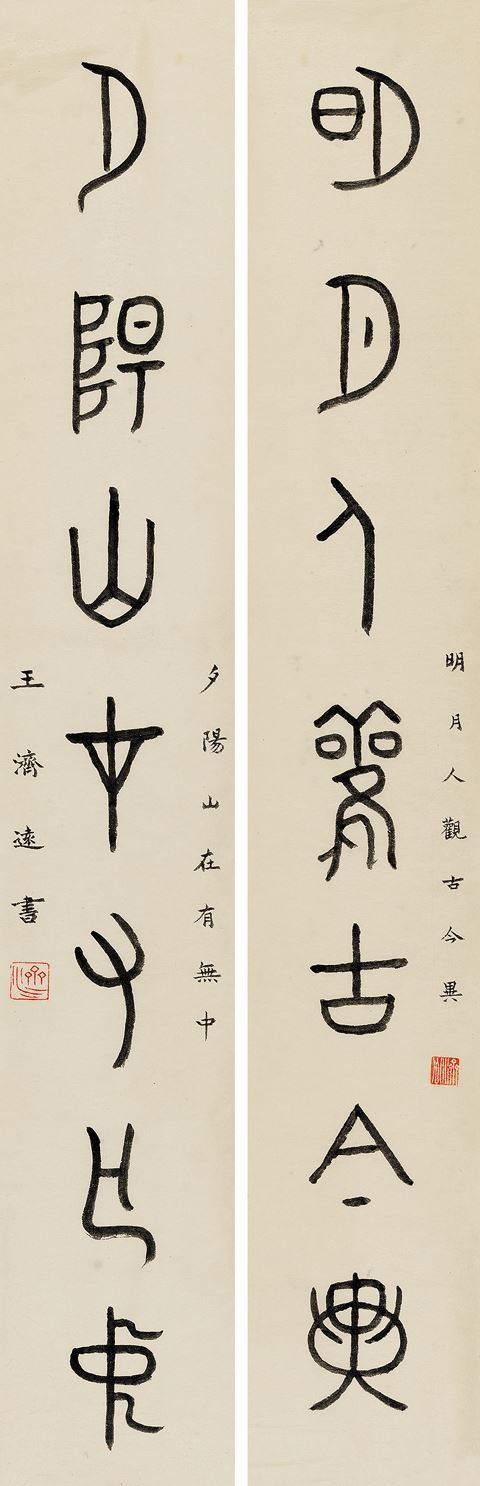 明月人觀古今異
明月人觀古今異
夕陽山在有無中
夕陽山在有無中
王濟遠書